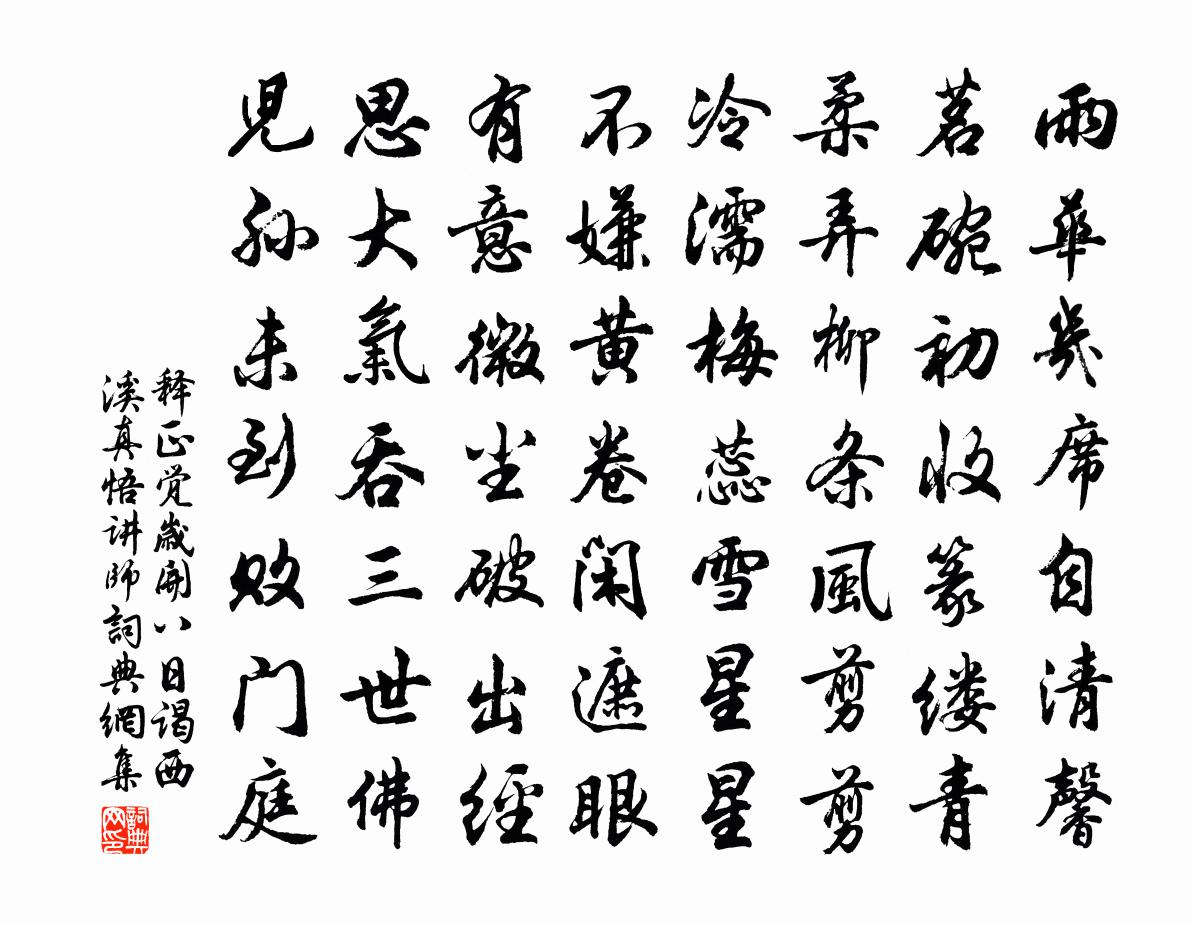 雨華幾席自清馨
茗碗初收篆缕青
柔弄柳条風剪剪
冷濡梅蕊雪星星
不嫌黄卷闲遮眼
有意微尘破出經
思大氣吞三世佛
児孙未到败门庭
释正觉歲開八日谒西
溪真悟讲师詞典網集
詞典網印